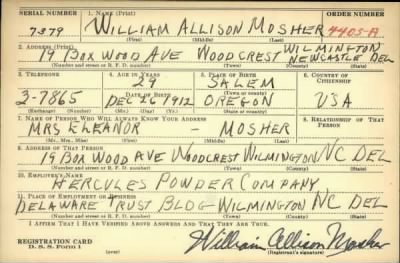 SERIAL NUMBER 1. NAME (Print) ORDER NUMBER
7379 WILLIAM ALLISON MOSHER 4405-A
(First) (Middle) (Last)
2. ADDRESS (Print)
19 BOX WOOD AVE WOODCREST WILMINGTON NEWCASTLE DEL
(Number and street or R. F. D. number) (Town) (County) (State)
3. TELEPHONE 4. AGE IN YEARS 5. PLACE OF BIRTH 6. COUNTRY OF CITIZENSHIP
SALEM
DATE OF BIRTH
3-7865 DEC 26 1912 OREGON USA
(Exchange) (Number) (Mo.) (Day) (Yr.) (State or country)
7. NAME OF PERSON WHO WILL ALWAYS KNOW YOUR ADDRESS 8. RELATIONSHIP OF THAT PERSON
MRS ELEANOR - MOSHER
(Mr., Mrs., Miss) (First) (Middle) (Last)
9. ADDRESS OF THAT PERSON
19 BOX WOOD AVE WOODCREST WILMINGTON NC DEL
(Number and street or R. F. D. number) (Town) (County) (State)
10. EMPLOYER'S NAME
HERCULES POWDER COMPANY
11. PLACE OF EMPLOYMENT OR BUSINESS
DELAWARE TRUST BLDG WILMINGTON NC DEL
(Number and street or R. F. D. number) (Town) (County) (State)
I AFFIRM THAT I HAVE VERIFIED ABOVE ANSWERS AND THAT THEY ARE TRUE.
REGISTRATION CARD
D. S. S. Form 1 (over) William Allison Mosher
(Registrant's signature)